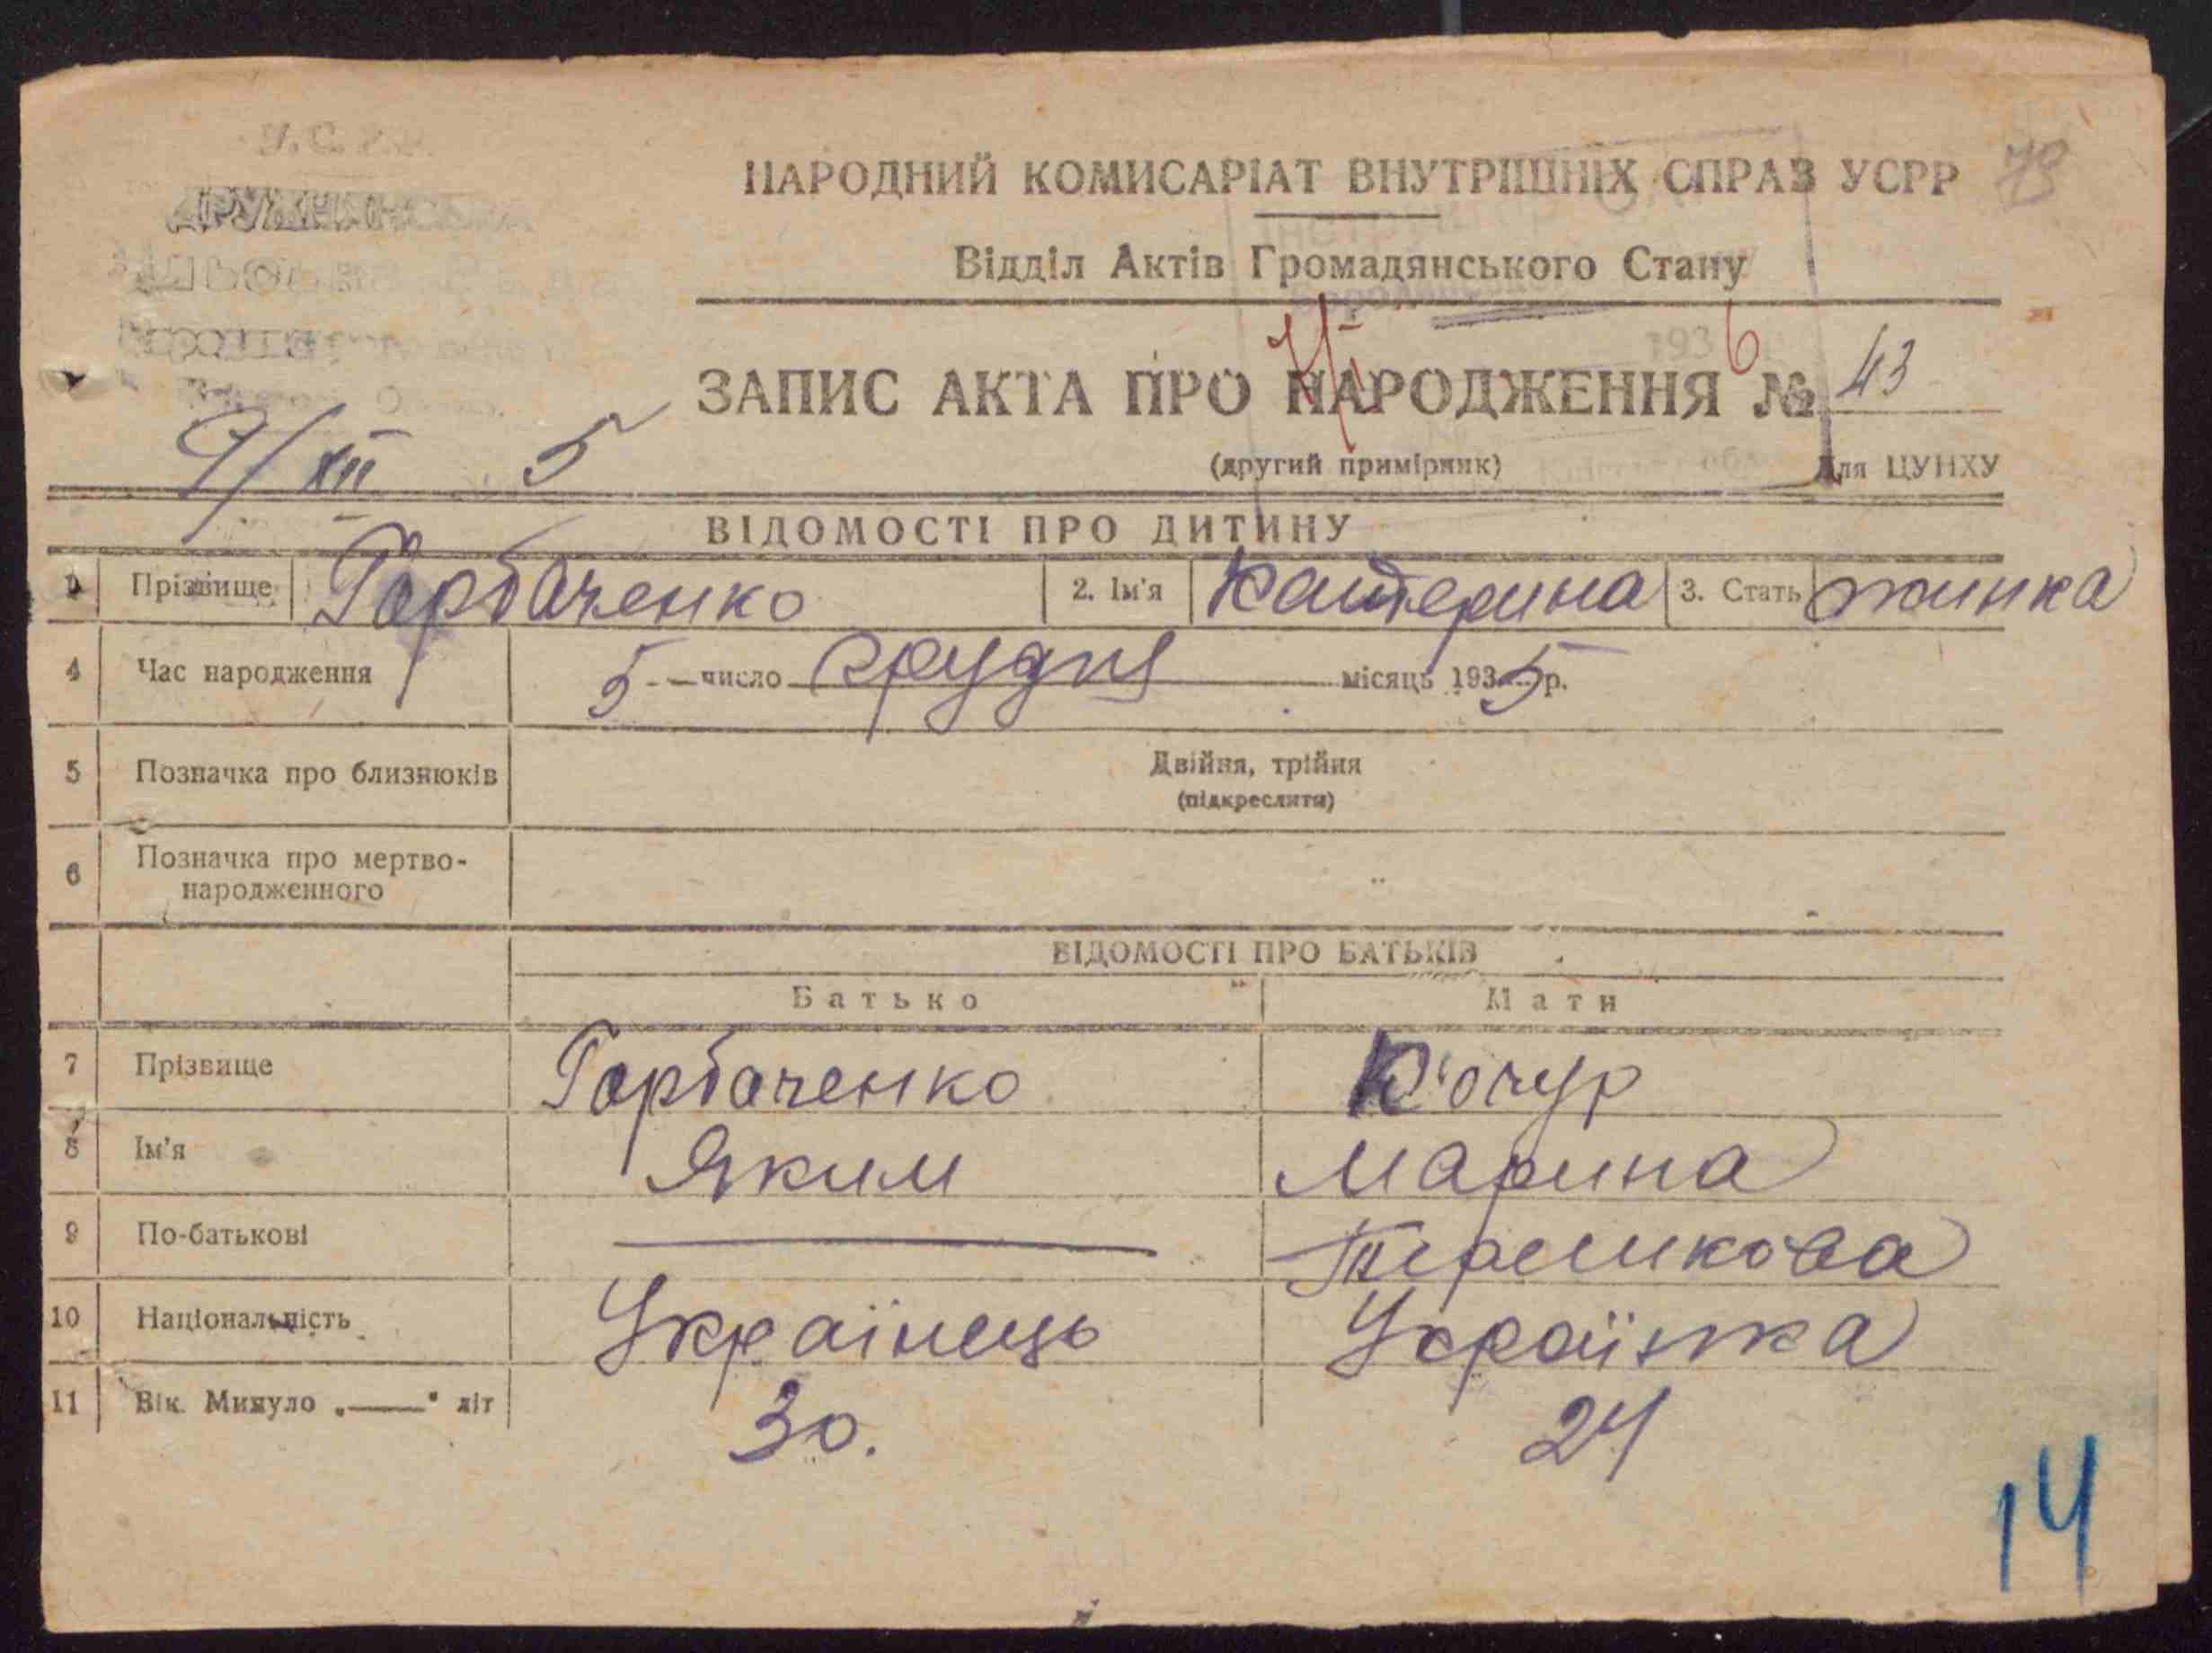 У.С.Р.Р.
ДРУЖНЯНСЬКА
НАРОДНИЙ КОМИСАРІАТ ВНУТРІШНІХ СПРАВ УСРР
Відділ Актів Громадянського Стану
193 6
ЗАПИС АКТА ПРО НАРОДЖЕННЯ № 43
9/XII 5
(другий примірник) Для ЦУНХУ
ВІДОМОСТІ ПРО ДИТИНУ
1 Прізвище Горбаченко 2. Ім'я Катерина 3. Стать жинка
4 Час народження 5 число грудня місяць 1935 р.
5 Позначка про близнюків Двійня, трійня
(підкреслити)
6 Позначка про мертво-
народженного
ВІДОМОСТІ ПРО БАТЬКІВ
Батько Мати
7 Прізвище Горбаченко Кочур
8 Ім'я Яким Марина
9 По-батькові
10 Національність Українець Українка
11 Вік. Минуло „——" літ 30. 24
14